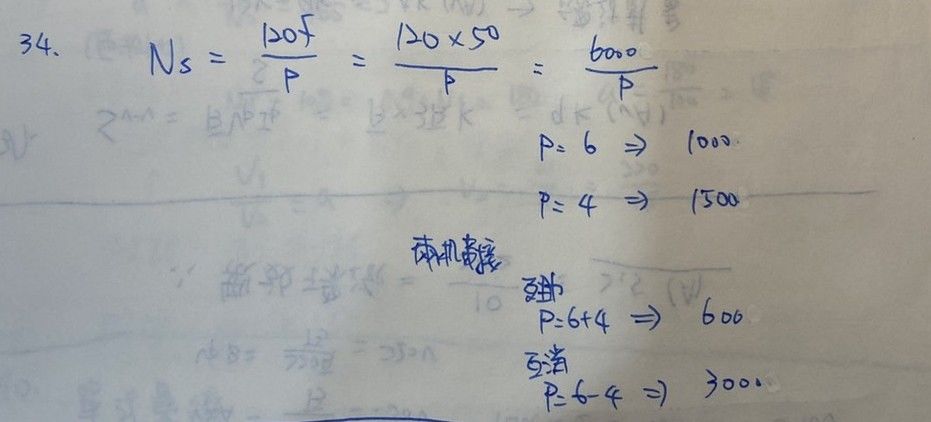 34. Ns = 120f/P = 120×50/P = 6000/P
P= 6 ⇒ 1000.
P= 4 ⇒ 1500
兩机串接
互助
P=6+4 ⇒ 600
互消
P=6-4 ⇒ 3000.